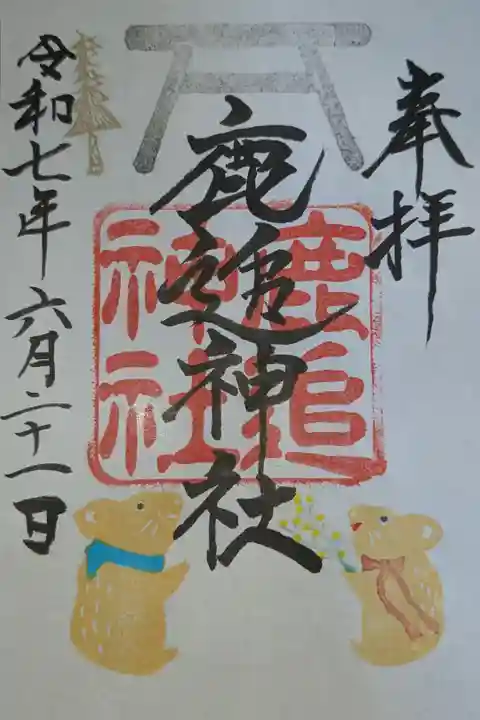 奉拝
鹿追神社
鹿追神社
令和七年六月二十一日